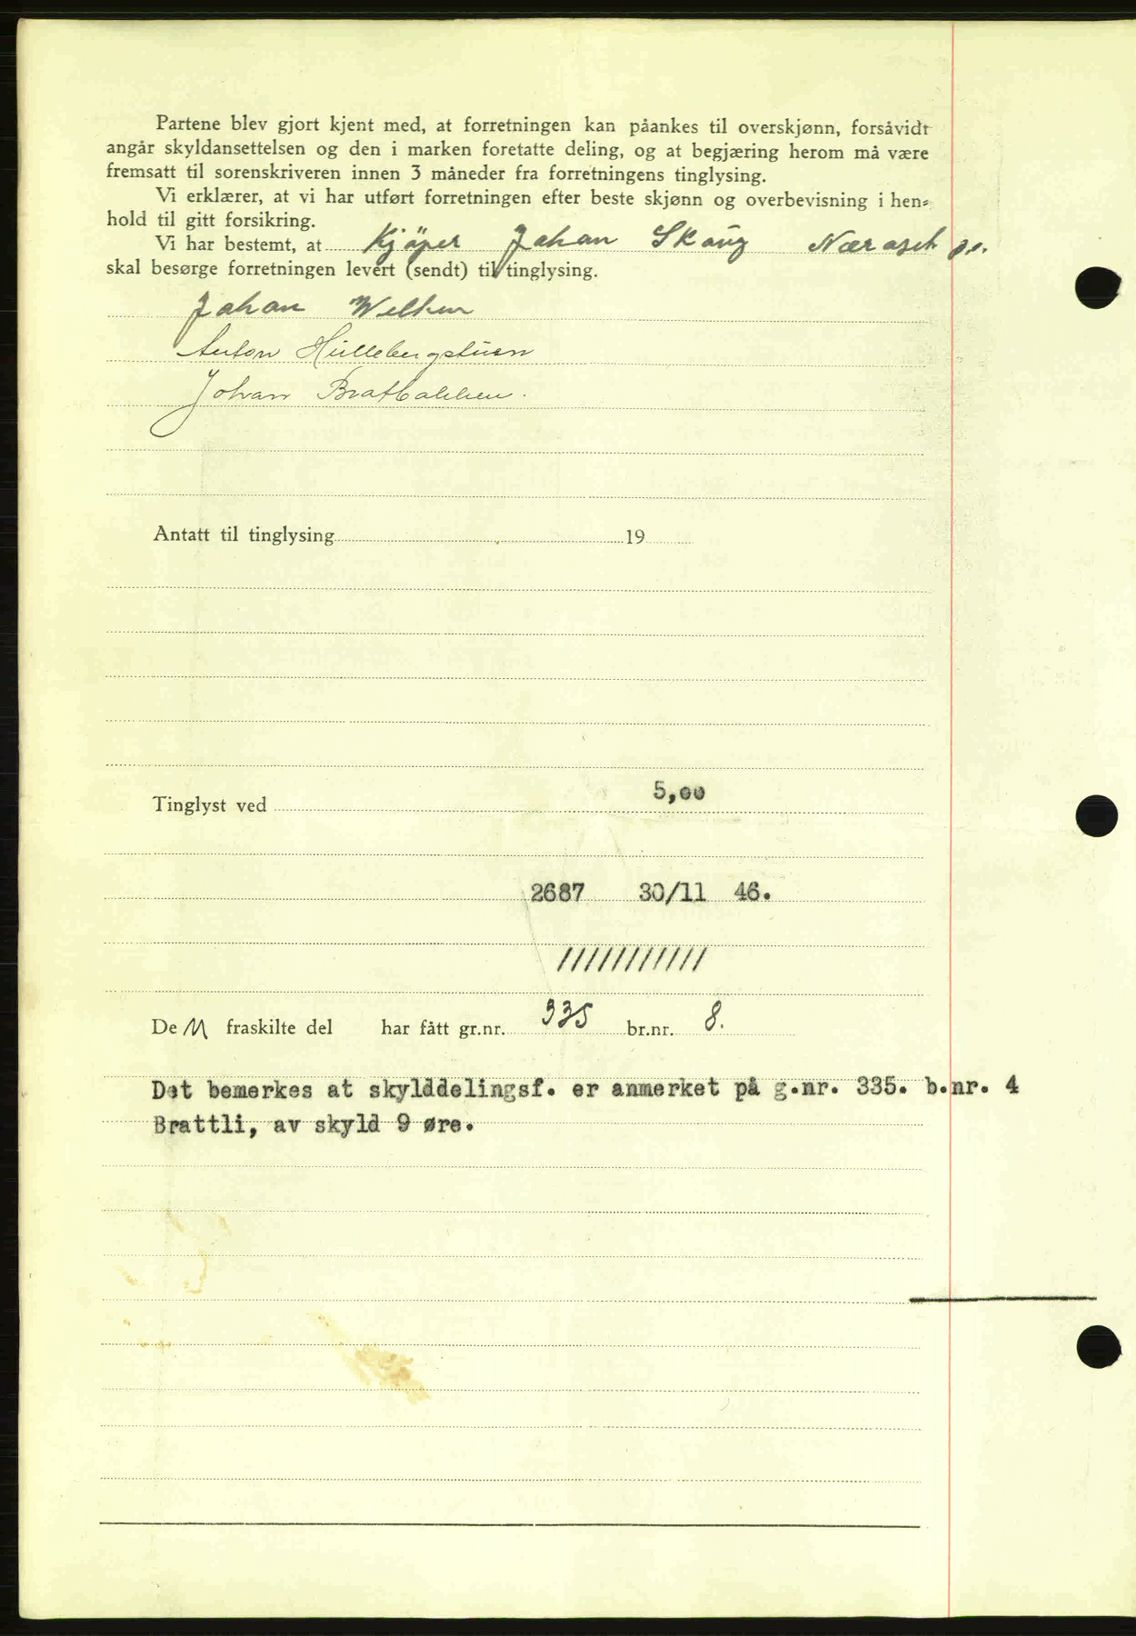 Partene blev gjort kjent med, at forretningen kan påankes til overskjønn, forsåvidt
angår skyldansettelsen og den i marken foretatte deling, og at begjæring herom må være
fremsatt til sorenskriveren innen 3 måneder fra forretningens tinglysing.
Vi erklærer, at vi har utført forretningen efter beste skjønn og overbevisning i hen=
hold til gitt forsikring.
Vi har bestemt, at Kjöper Johan Skaug Næroset po.
skal besørge forretningen levert (sendt) til tinglysing.
Johan
Anton
Johan Bratbakken.
Antatt til tinglysing 19
Tinglyst ved 5,00
2687 30/11 46.
///////////
De n fraskilte del har fått gr.nr. 335 br.nr. 8.
Det bemerkes at skylddelingsf. er anmerket på g.nr. 335. b.nr. 4
Brattli, av skyld 9 øre.